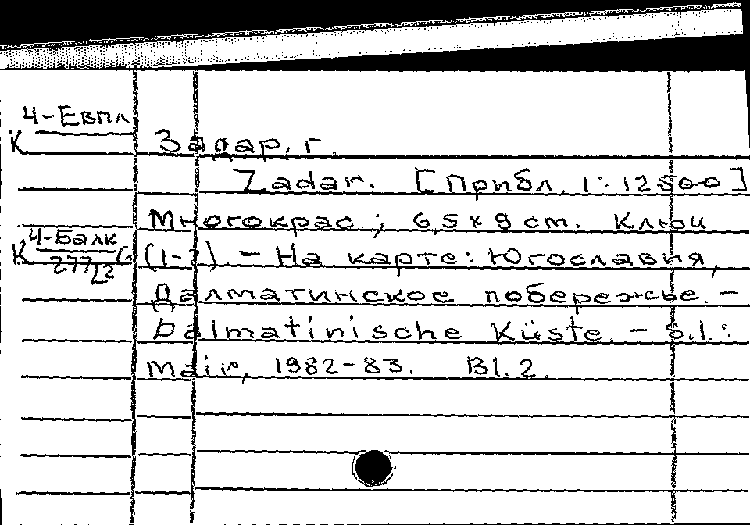 4-Евпл
К
Задар, г.
Zadar. [Прибл. 1:12500]
Многокрас; 6,5х9 cm. Ключ
К 4-Балк
(1-7). - На карте: Югославия,
Далматинское побережье. -
Dalmatinische Küste. - S.l.:
Mair, 1982-83. Bl. 2.